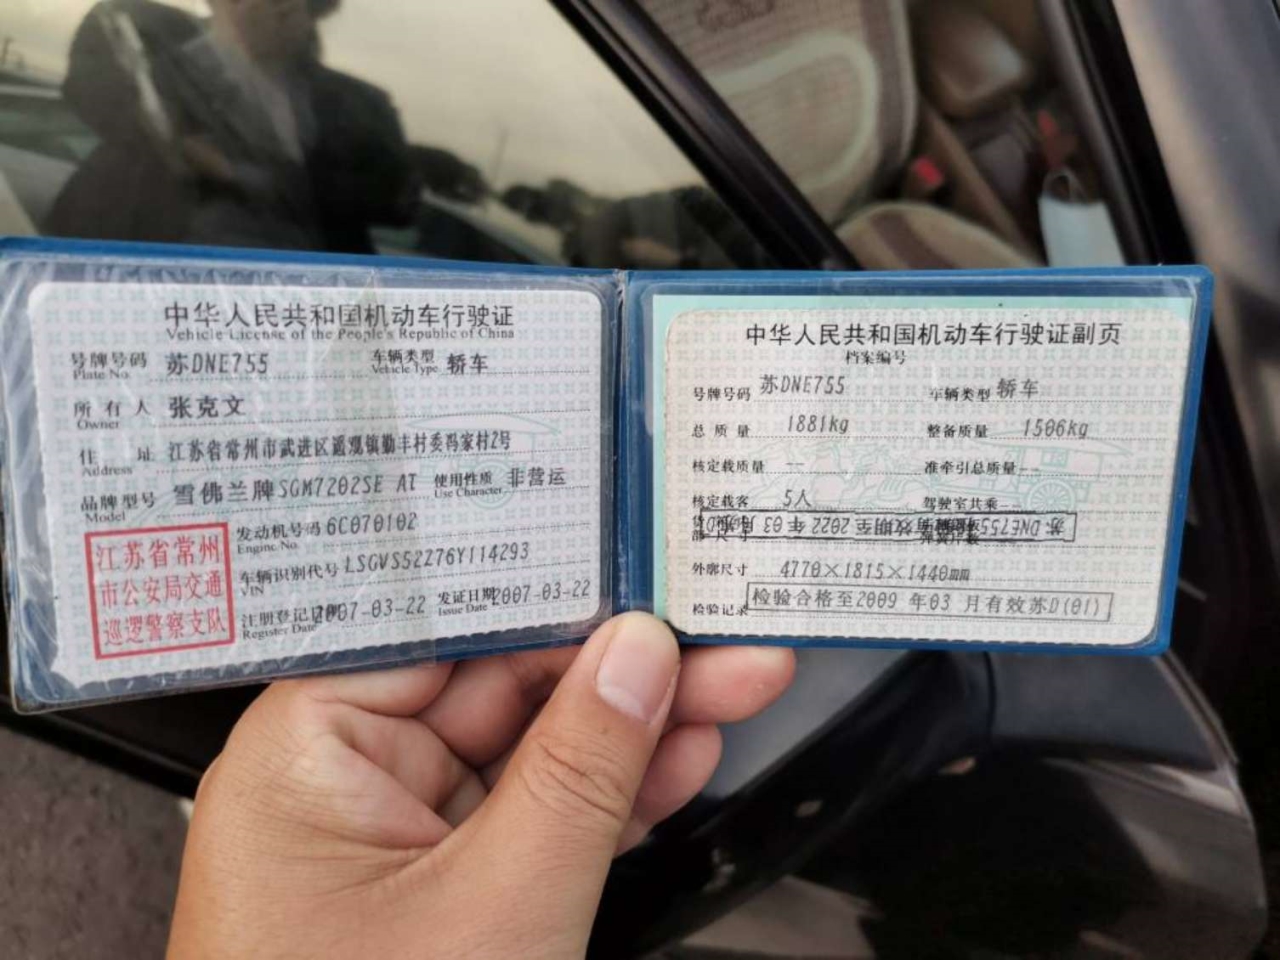 中华人民共和国机动车行驶证
Vehicle License of the People's Republic of China
号牌号码 苏DNE755 车辆类型 轿车
Plate No. Vehicle Type
所有人 张克文
Owner
住址 江苏省常州市武进区遥观镇勤丰村委冯家村2号
Address
品牌型号 雪佛兰牌SGM7202SE AT 使用性质 非营运
Model Use Character
江苏省常州
市公安局交通
巡逻警察支队
发动机号码 6C070102
Engine No.
车辆识别代号 LSGVS52276Y114293
VIN
注册登记日期 2007-03-22 发证日期 2007-03-22
Register Date Issue Date
中华人民共和国机动车行驶证副页
档案编号
号牌号码 苏DNE755 车辆类型 轿车
总质量 1881kg 整备质量 1506kg
核定载质量 -- 准牵引总质量 --
核定载客 5人 驾驶室共乘 --
苏DNE755 有效期至2022年03月
外廓尺寸 4770×1815×1440mm
检验记录 检验合格至2009 年03 月有效苏D(01)